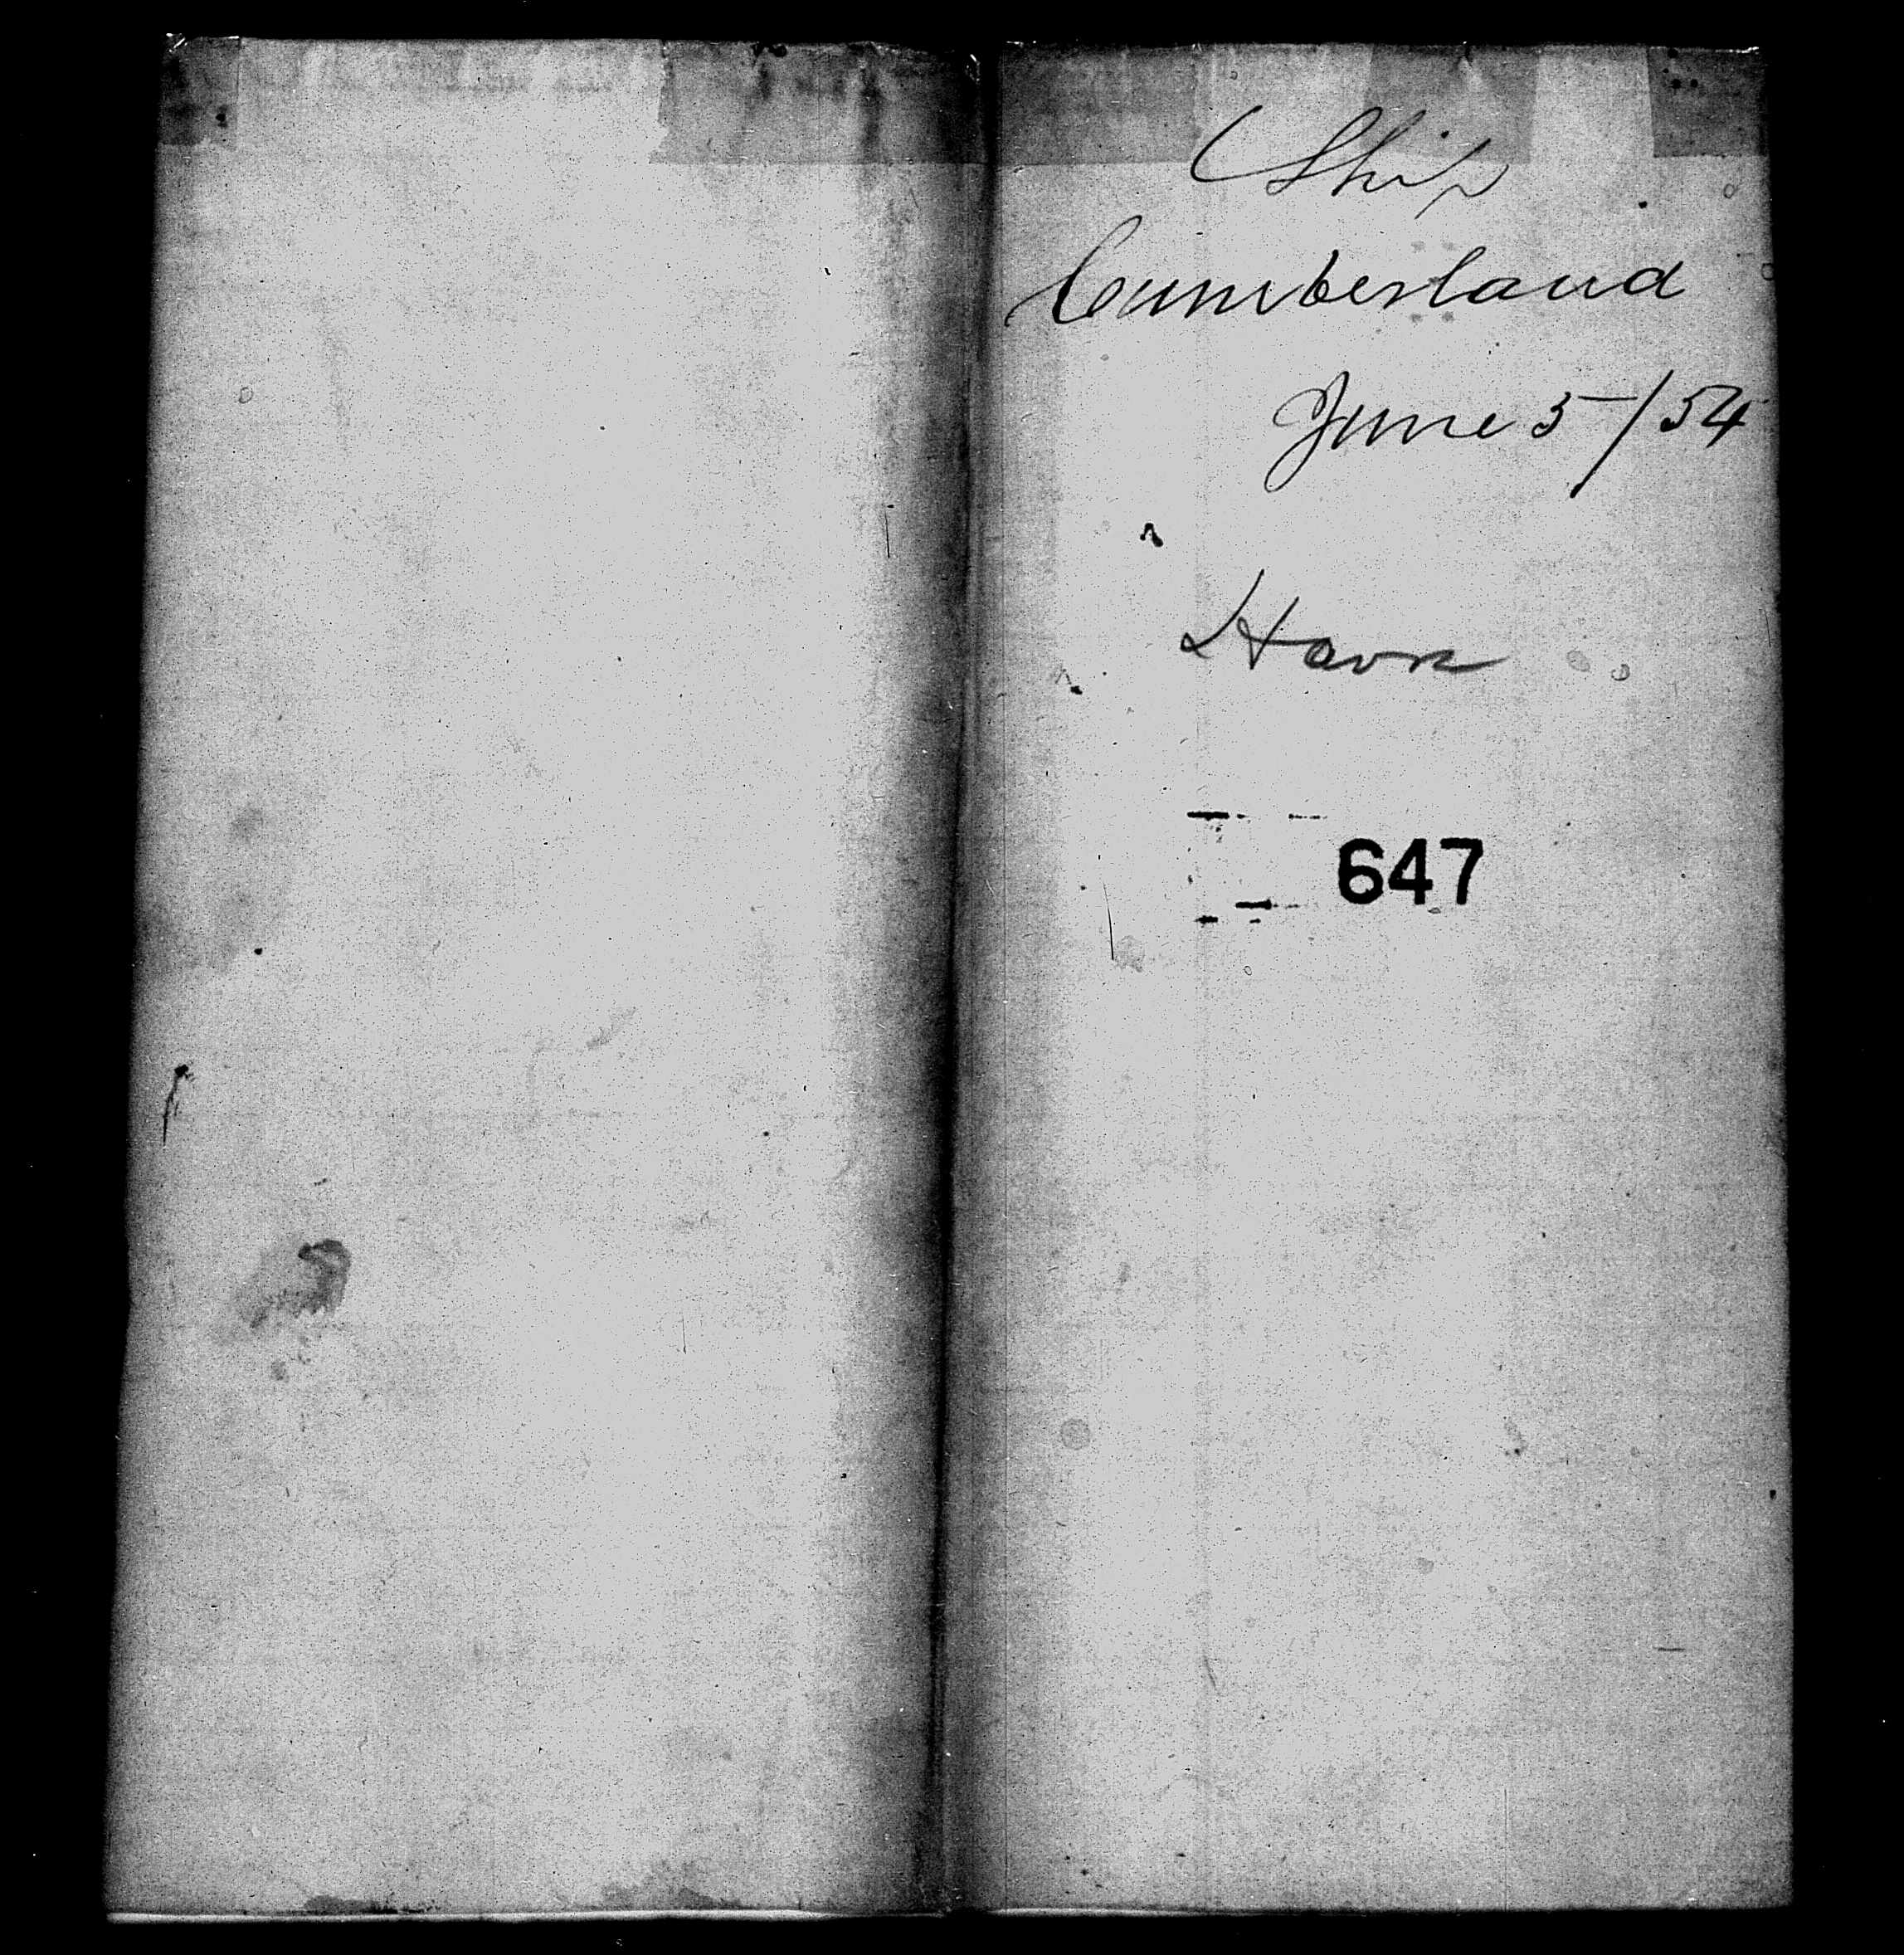 Ship
Cumberland
June 5/54
Havre
647